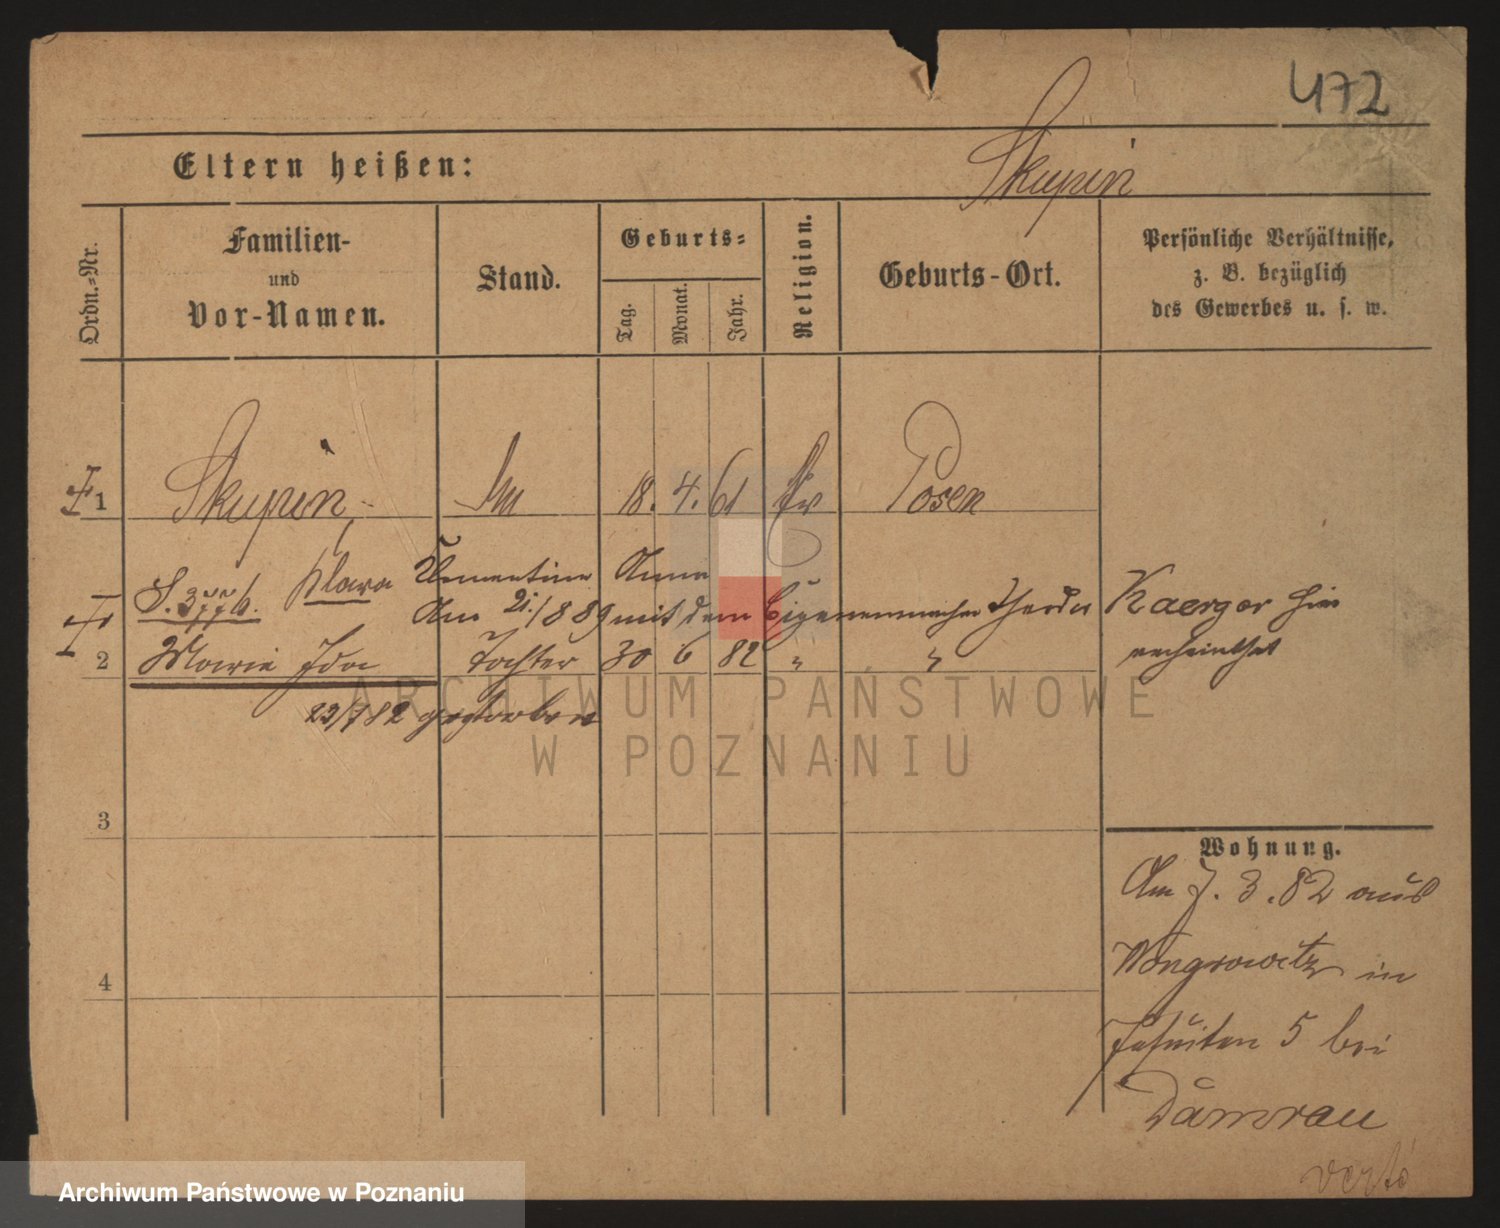 472
Eltern heißen:
Skupin
Ordn.-Nr.
Familien-
und
Vor-Namen.
Stand.
Geburts-
Tag.
Monat.
Jahr.
Religion.
Geburts-Ort.
Persönliche Verhältnisse,
z. B. bezüglich
des Gewerbes u. s. w.
1 Skupin, 18. 4. 61 Posen
Klara Clementine Anna
S. 3776.
Am 21/1 89 mit dem Cigarrenmacher Kaerger hier
verheirathet
2 Marie Ida Tochter 30 6 82 " "
23/7 82 gestorben
3
4
Wohnung.
Am 7. 3. 82 aus
Wongrowitz in
Jesuiten 5 bei
Damrau
verte
ARCHIWUM PAŃSTWOWE
W POZNANIU
Archiwum Państwowe w Poznaniu